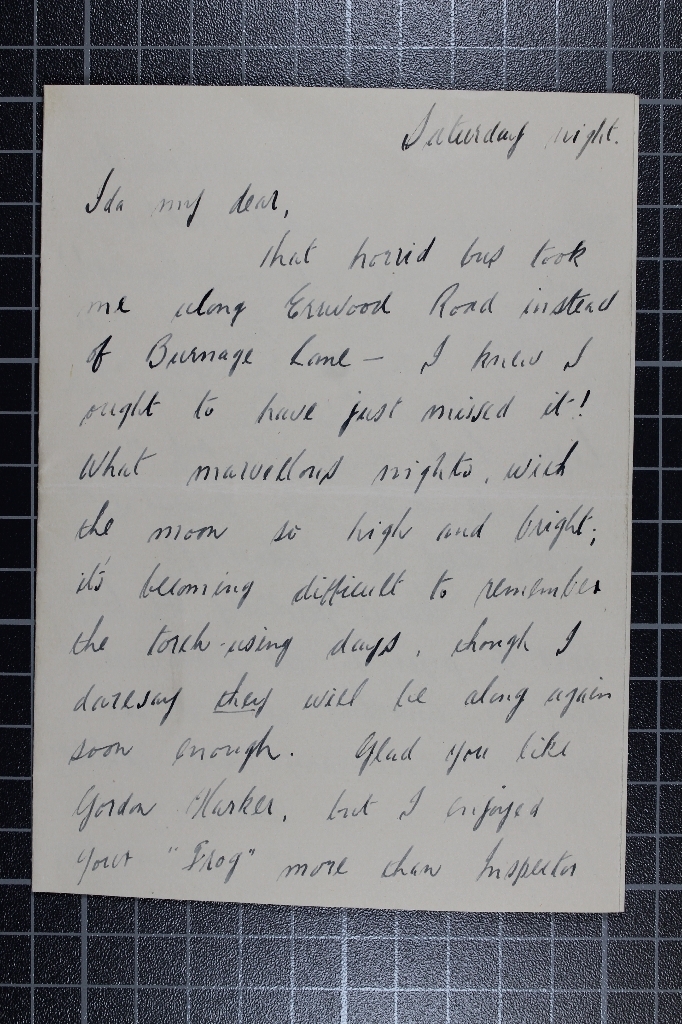 Saturday night.
Ida my dear,
That horrid bus took
me along Errwood Road instead
of Burnage Lane – I knew I
ought to have just missed it!
What marvellous nights, with
the moon so high and bright;
it's becoming difficult to remember
the torch-using days, though I
daresay they will be along again
soon enough. Glad you like
Gordon Harker, but I enjoyed
your "Frog" more than Inspector